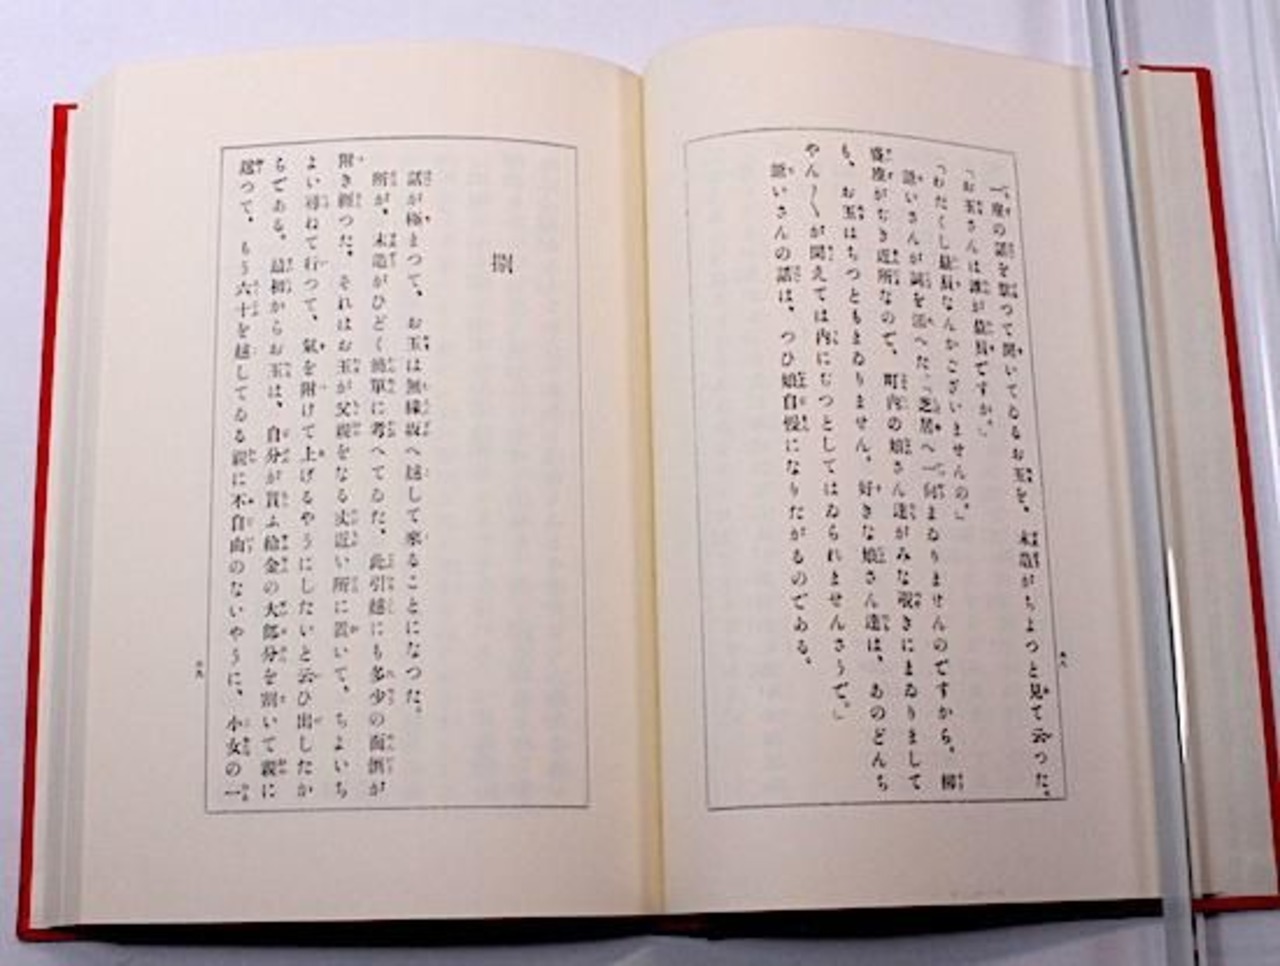 一座の話を默つて聞いてゐるお玉を、末造がちよつと見て云つた。
「お玉さんは誰が贔屓ですか。」
「わたくし贔屓なんかございませんの。」
爺いさんが詞を添へた。「芝居へ一向まゐりませんのですから。柳
盛座がぢき近所なので、町内の娘さん達がみな覗きにまゐりまして
も、お玉はちつともまゐりません。好きな娘さん達は、あのどんち
やん〳〵が聞えては内にぢつとしてはゐられませんさうで。」
爺いさんの話は、つひ娘自慢になりたがるのである。
捌
話が極まつて、お玉は無緣坂へ越して來ることになつた。
所が、末造がひどく簡單に考へてゐた、此引越にも多少の面倒が
附き纏つた。それはお玉が父親をなる丈近い所に置いて、ちよいち
よい尋ねて行つて、氣を附けて上げるやうにしたいと云ひ出したか
らである。最初からお玉は、自分が貰ふ給金の大部分を割いて親に
送つて、もう六十を越してゐる親に不自由のないやうに、小女の一